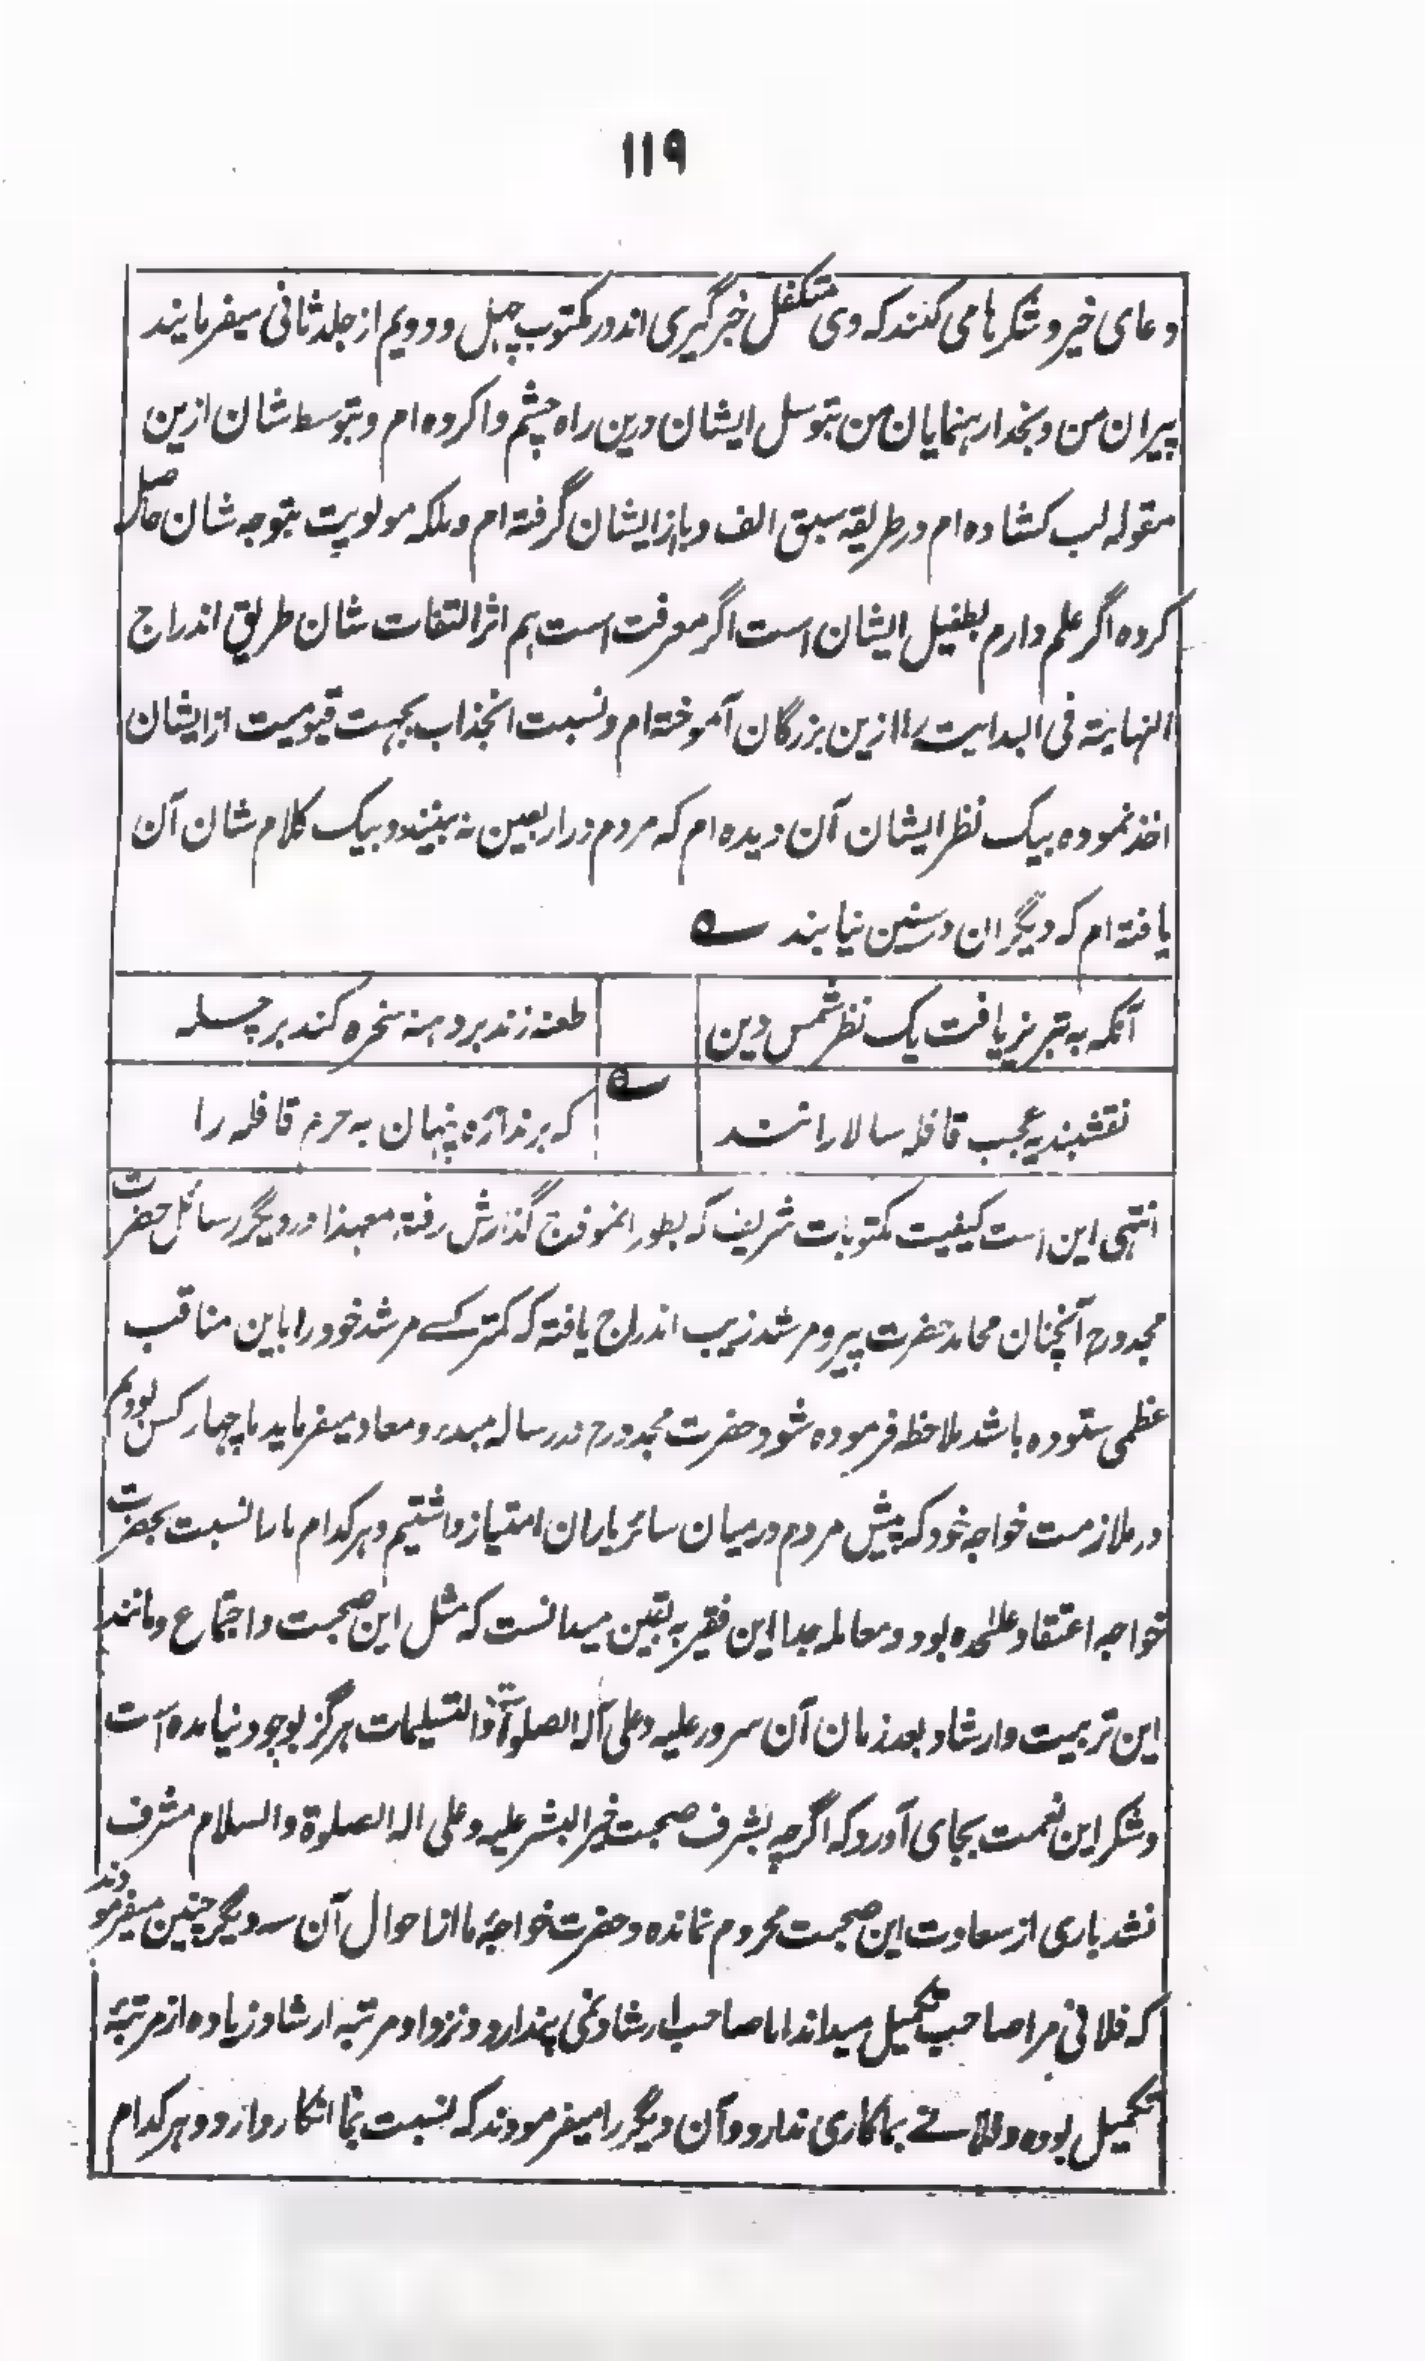 ۱۱۹
دعای خیر و شکرها می کنند که وی متکفل خبرگیری اند در مکتوب چهل و دویم از جلد ثانی میفرمایند
پیران من و بخدا رهنمایان من بتوسل ایشان درین راه چشم وا کرده ام و بتوسط شان ازین
مقوله لب کشاده ام در طریقه سبق الف و با از ایشان گرفته ام و ملکه مولویت بتوجه شان حاصل
کرده اگر علم دارم بطفیل ایشان است اگر معرفت است هم اثر التفات شان طریق اندراج
النهایته فی البدایت را ازین بزرگان آموخته ام و نسبت انجذاب بجهت قیومیت از ایشان
اخذ نموده بیک نظر ایشان آن دیده ام که مردم در اربعین نه بینند و بیک کلام شان آن
یافته ام که دیگران در سنین نیابند ؎
آنکه به تبریز یافت یک نظر شمس دین طعنه زند بر دهه سخره کند بر چسله
؎
نقشبندیه عجب قافله سالارانند که برند از ره پنهان به حرم قافله را
انتهی این است کیفیت مکتوبات شریف که بطور انموذج گذارش رفته معهذا در دیگر رسائل حضرت
مجدد رح آنچنان محامد حضرت پیر و مرشد زیب اندراج یافته که کمتر کسے مرشد خود را باین مناقب
عظمی ستوده باشد ملاحظه فرموده شود حضرت مجدد رح در رساله مبدء و معاد میفرماید ما چهار کس بودیم
در ملازمت خواجه خود که پیش مردم در میان سائر یاران امتیاز داشتیم و هر کدام ما را نسبت بحضرت
خواجه اعتقاد علحده بود و معامله جدا این فقیر به یقین میدانست که مثل این صحبت و اجتماع و مانند
این تربیت و ارشاد بعد زمان آن سرور علیه و علی آله الصلوة والتسلیمات هرگز بوجود نیامده است
و شکر این نعمت بجای آورد که اگرچه بشرف صحبت خیر البشر علیه و علی اله الصلوة والسلام مشرف
نشد باری از سعادت این صحبت محروم نمانده و حضرت خواجهٔ ما از احوال آن سه دیگر چنین میفرمودند
که فلانی مرا صاحب تکمیل میداند اما صاحب ارشاد نمی پندارد و نزد او مرتبه ارشاد زیاده از مرتبهٔ
تکمیل بوده و فلانے بما کاری ندارد و آن دیگر را میفرمودند که نسبت بما انکار دارد و هر کدام